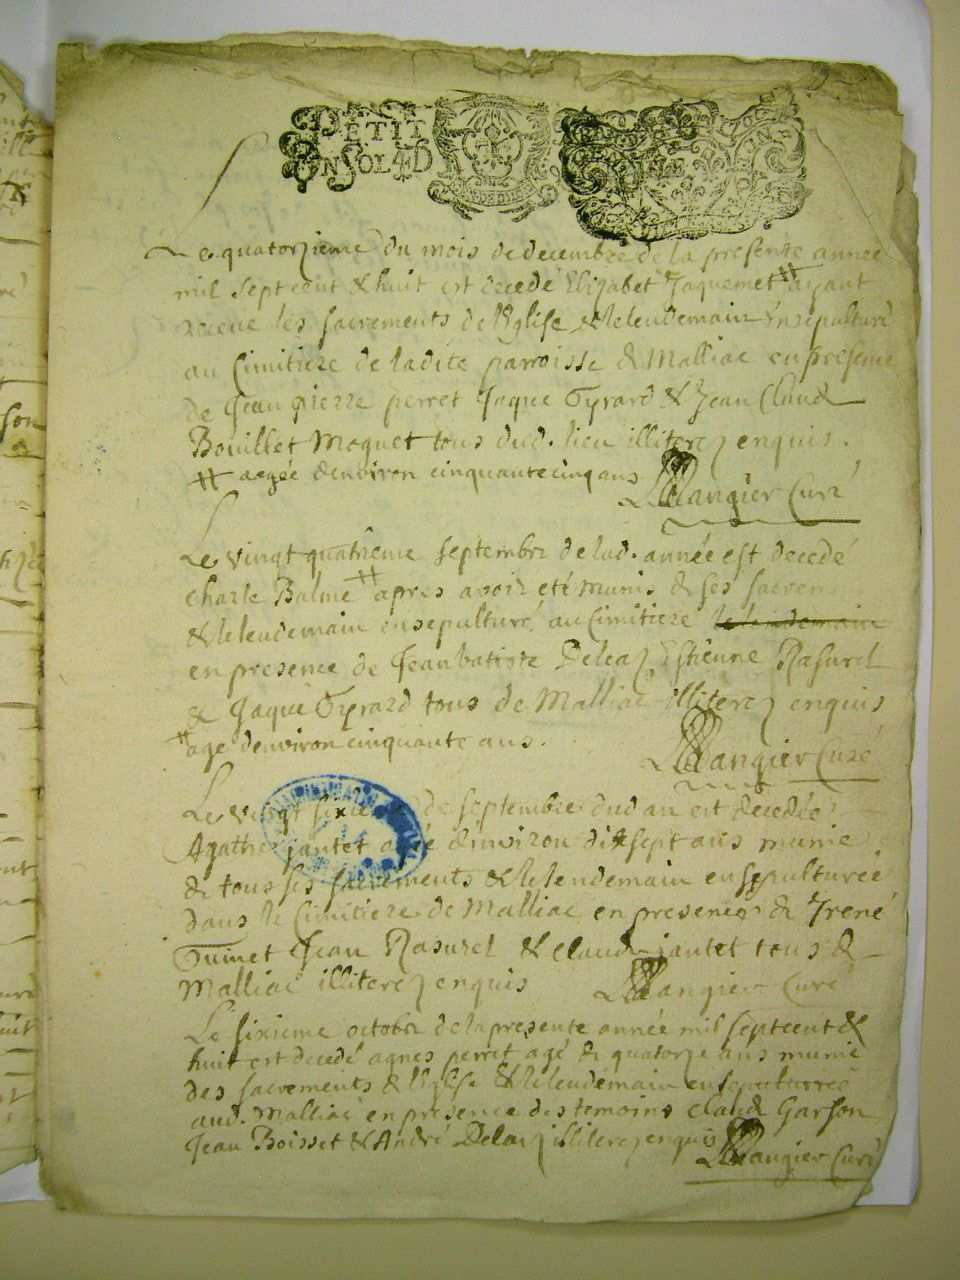 PETIT
UN SOL 4 D
Le quatorzieme du mois de decembre de la presente année
mil sept cent & huit est decedé Elizabet Jaquemet # ayant
receue les sacrements de l'Eglise & le lendemain ensepulturé
au Cimitiere de ladite parroisse de Malliac en presence
de Jean pierre perret Jaque Gyrard & Jean Claude
Bouillet Moquet tous dud. lieu illiterez enquis.
# aegée denviron cinquante cinq ans
Mangier Curé
Le vingt quatrieme septembre de lad. année est decedé
charle Balme # apres avoir eté munis de ses sacrem
& le lendemain ensepulturé au Cimitiere le lendemain
en presence de Jean batiste Deleaz Estienne Rasurel
& Jaque Gyrard tous de Malliac illiterez enquis
# agé denviron cinquante ans.
Mangier Curé
Le vingt sixieme de septembre dud an est decedée
Agathe jantet agé denviron disept ans munie
de tous ses sacrements & le lendemain ensepulturée
dans le Cimitiere de Malliac en presence de Irené
Guinet Jean Rasurel & Claude jantet tous de
Malliac illiterez enquis Mangier Curé
Le sixieme octobre de la presente année mil sept cent &
huit est decedé agnes perret agé de quatorze ans munie
des sacrements de l'Eglise & le lendemain ensepulturée
aud. Malliac en presence des temoins Claude Garson
Jean Boisset & André Delaiz illiterez enquis Mangier Curé